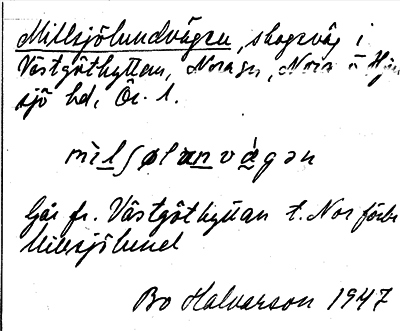 Millsjölundvägen, skogsväg i
Västgöthyttan, Nora sn, Nora o Hju
sjö hd, Ör. l.
mìlʃølunvàgən
Går fr. Västgöthyttan t. Nor förbi
Millsjölund
Bo Halvarson 1947